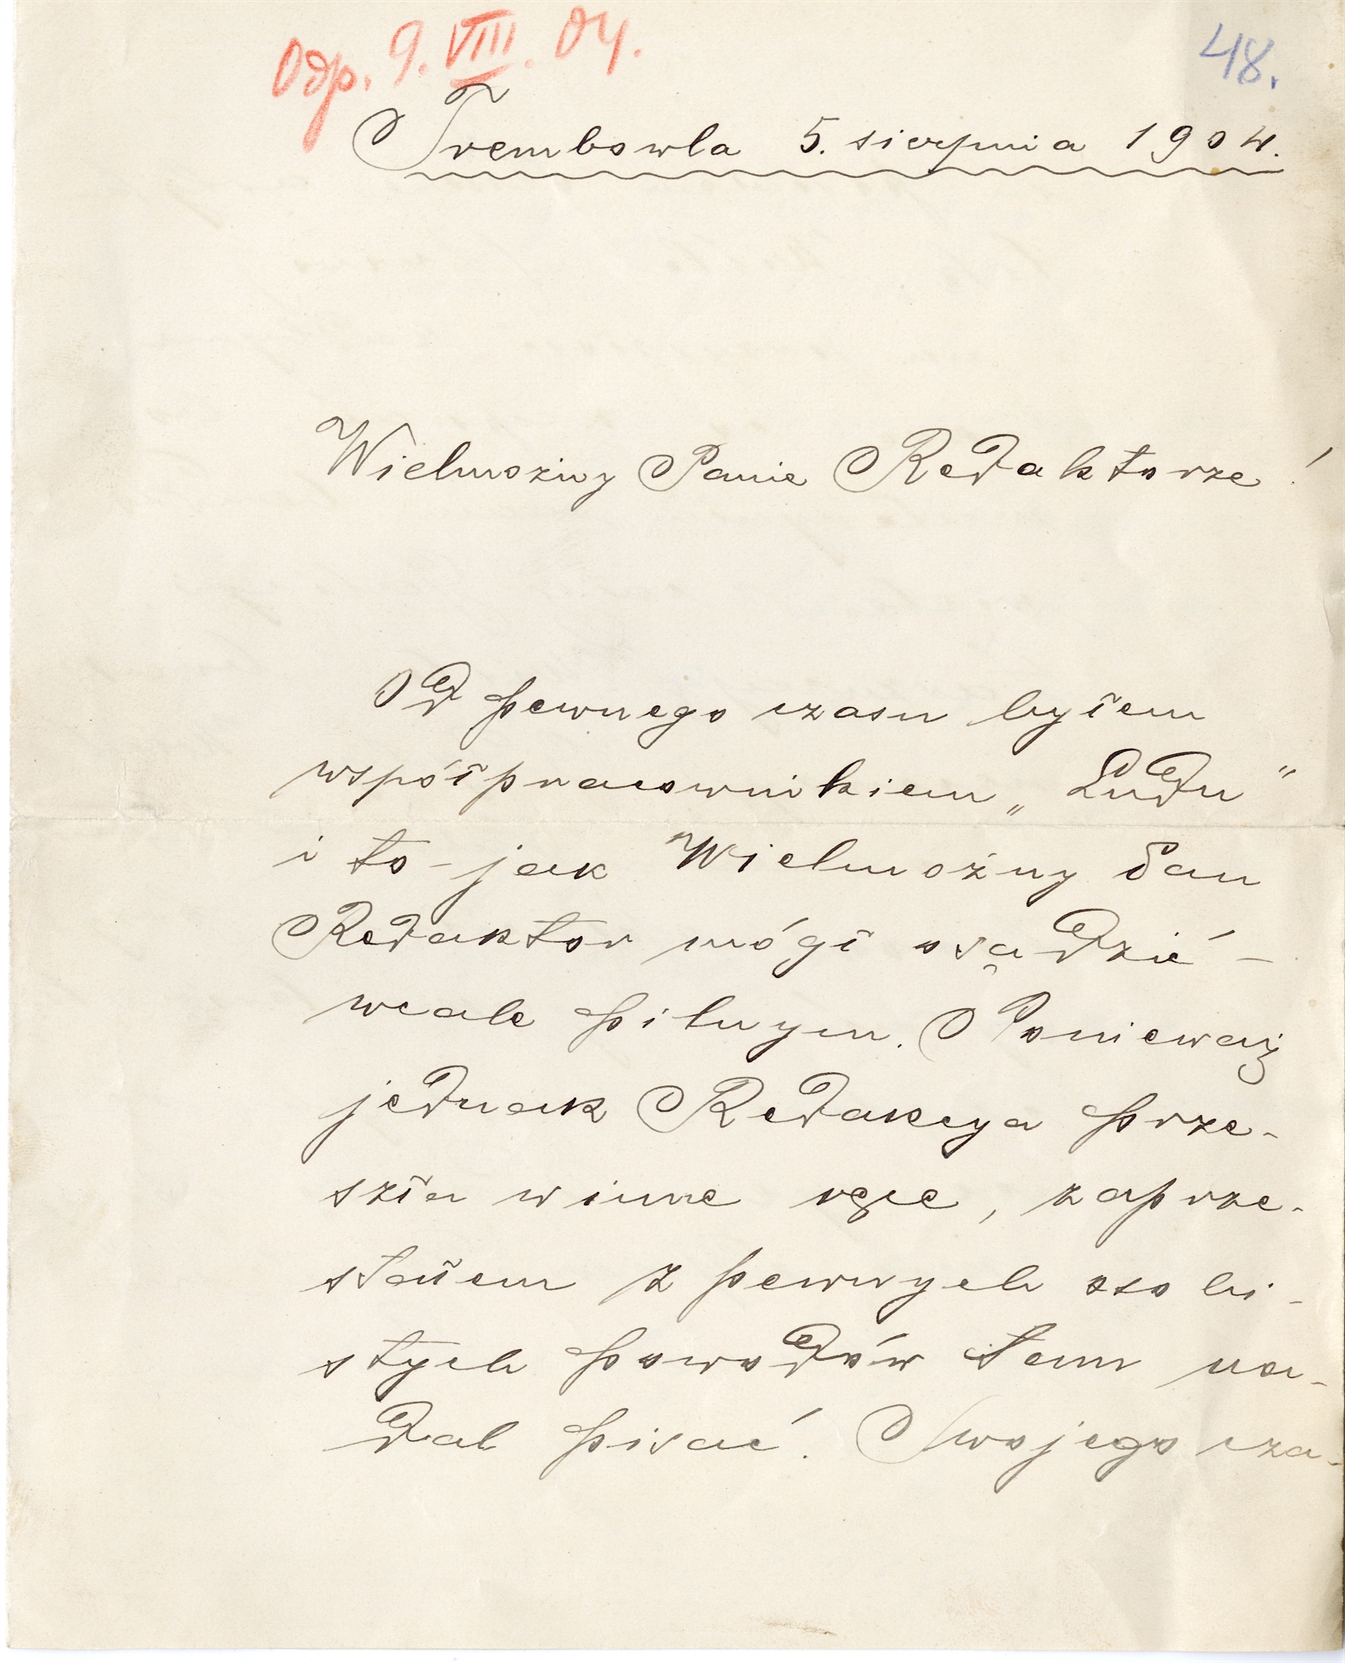 Odp. 9. VIII. 04.
48.
Trembowla 5. sierpnia 1904.
Wielmożny Panie Redaktorze!
Od pewnego czasu byłem
współpracownikiem „Ludu"
i to - jak Wielmożny Pan
Redaktor mógł osądzić -
wcale pilnym. Ponieważ
jednak Redakcya prze-
szła w inne ręce, zaprze-
stałem z pewnych osobi-
stych powodów tam na-
dal pisać. Swojego cza-